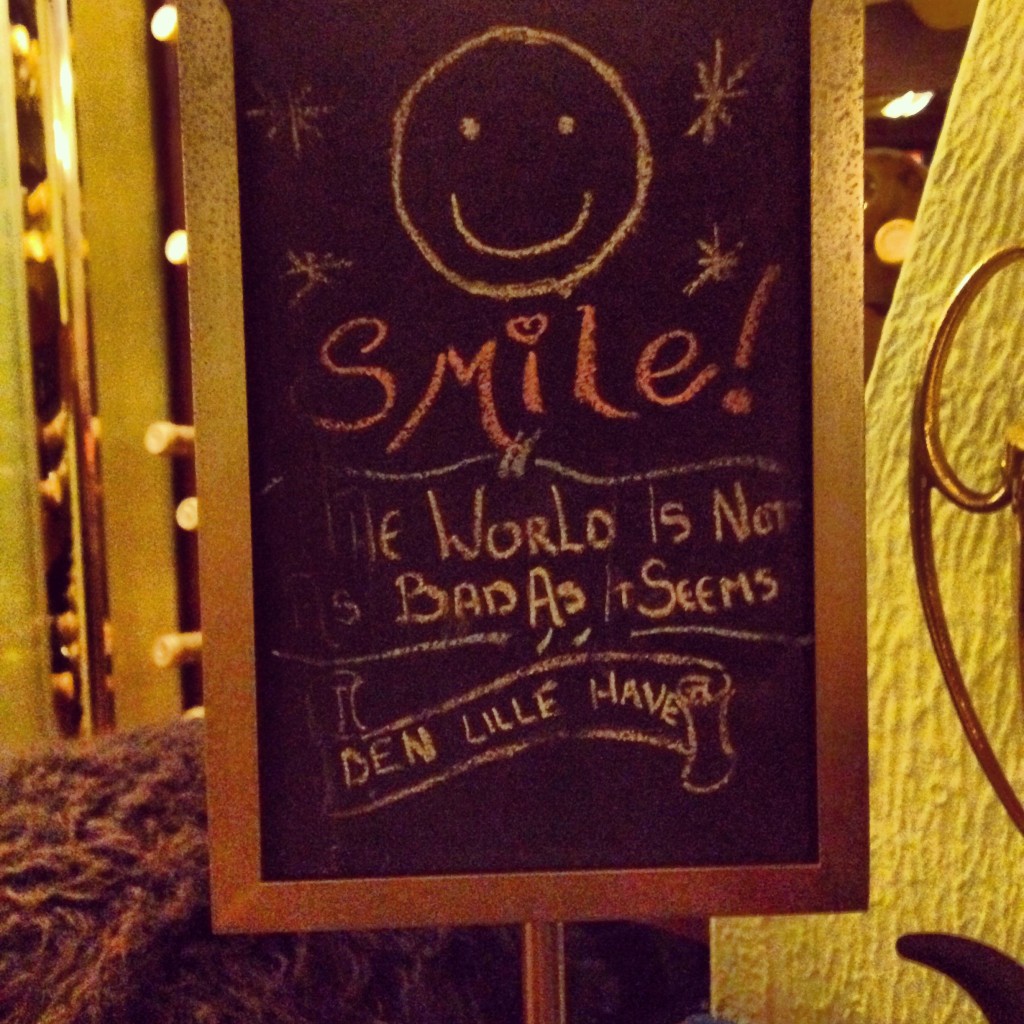 Smile!
THE WORLD IS NOT
AS BAD AS IT SEEMS
DEN LILLE HAVE